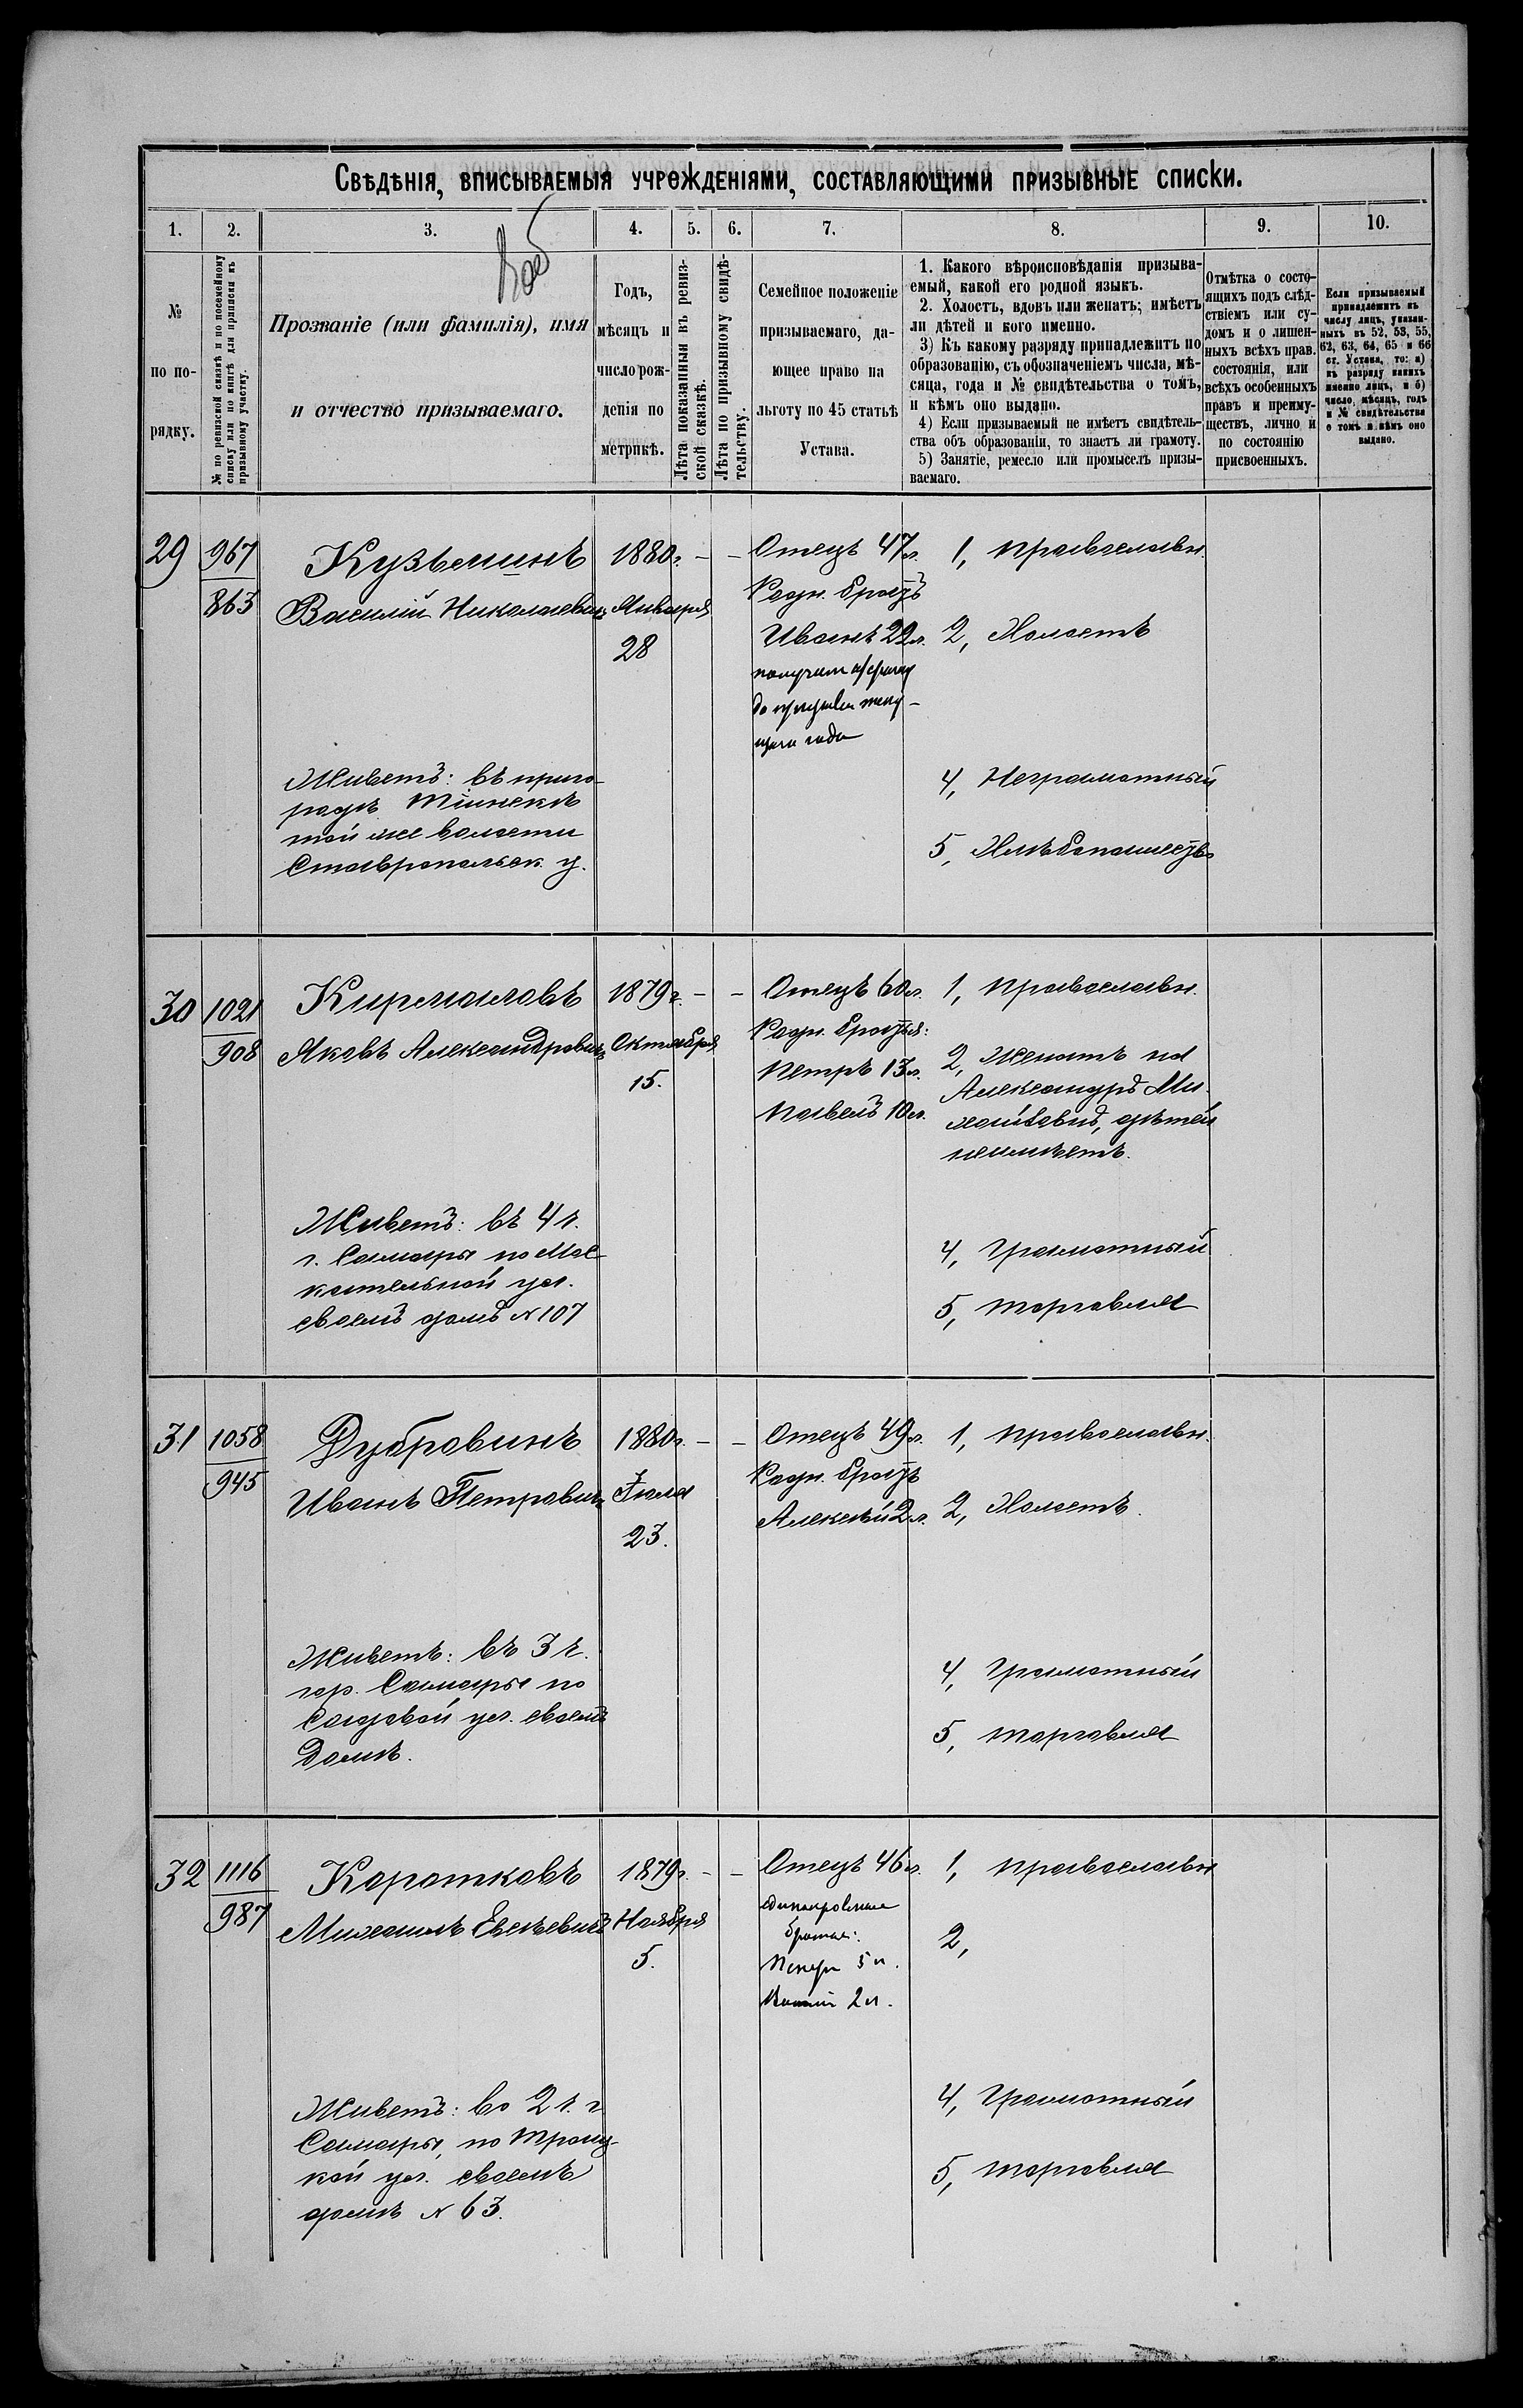 Свѣдѣнія, вписываемыя учрежденіями, составляющими призывные списки.
1. 2. 3. 4. 5. 6. 7. 8. 9. 10.
№ по порядку.
№ по ревизской сказкѣ и по посемейному
списку или по книгѣ для приписки къ
призывному участку.
Прозваніе (или фамилія), имя
и отчество призываемаго.
Годъ,
мѣсяцъ и
число рож-
денія по
метрикѣ.
Лѣта показанныя въ ревиз-
ской сказкѣ.
Лѣта по призывному свидѣ-
тельству.
Семейное положеніе
призываемаго, да-
ющее право на
льготу по 45 статьѣ
Устава.
1. Какого вѣроисповѣданія призыва-
емый, какой его родной языкъ.
2. Холостъ, вдовъ или женатъ; имѣетъ
ли дѣтей и кого именно.
3) Къ какому разряду принадлежитъ по
образованію, съ обозначеніемъ числа, мѣ-
сяца, года и № свидѣтельства о томъ,
и кѣмъ оно выдано.
4) Если призываемый не имѣетъ свидѣтель-
ства объ образованіи, то знаетъ ли грамоту.
5) Занятіе, ремесло или промыселъ призы-
ваемаго.
Отмѣтка о состо-
ящихъ подъ слѣд-
ствіемъ или су-
домъ и о лишен-
ныхъ всѣхъ прав.
состоянія, или
всѣхъ особенныхъ
правъ и преиму-
ществъ, лично и
по состоянію
присвоенныхъ.
Если призываемый
принадлежитъ къ
числу лицъ, указан-
ныхъ въ 52, 53, 55,
62, 63, 64, 65 и 66
ст. Устава, то: а)
къ разряду какихъ
именно лицъ, и б)
число, мѣсяцъ, годъ
и № свидѣтельства
о томъ и кѣмъ оно
выдано.
29
967
863
Кузьминъ
Василій Николаевичъ
1880г.
Января
28
– –
Отецъ 47л.
Родн. братъ
Иванъ 22л.
до призыва теку-
щаго года
1, Православн.
2, Холостъ
4, Неграмотный
5, Хлѣбопашество
Живетъ: въ приго-
родѣ Тіинскѣ
той же волости
Ставропольск. у.
30
1021
908
Кирмаловъ
Яковъ Александровичъ
1879г.
Октября
15.
– –
Отецъ 60л.
Родн. братья:
Петръ 13л.
Павелъ 10л.
1, Православн.
2, Женатъ на
Александрѣ Ми-
хайловнѣ, дѣтей
неимѣетъ.
4, Грамотный
5, Торговля
Живетъ: въ 4 ч.
г. Самары по Мос-
кательной ул.
своемъ домѣ № 107
31
1058
945
Дубровинъ
Иванъ Петровичъ
1880г.
Іюля
23.
– –
Отецъ 49л.
Родн. братъ
Алексѣй 2л.
1, Православн.
2, Холостъ.
4, Грамотный
5, Торговля
Живетъ: въ 3 ч.
гор. Самары по
Садовой ул. своемъ
Домѣ.
32
1116
987
Коротковъ
Михаилъ Евсѣевичъ
1879г.
Ноября
5.
– –
Отецъ 46л.
единокровные
братья:
5 л.
2 л.
1, Православн
2,
4, Грамотный
5, Торговля
Живетъ: во 2 ч. г.
Самары, по Троиц-
кой ул. своемъ
домѣ № 63.